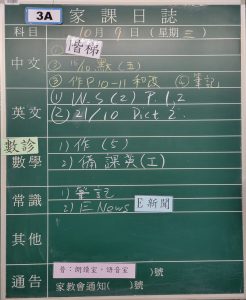 3A 家課日誌
科目 10月9日(星期三)
中文 ① 階梯
② 15/10 默(五)
③ 作P.10-11和改 ④ 筆記
英文 ① W.S(2) P.1,2
② 21/10 Dict 2.
數診 1) 作(5)
數學 2) 備課英(工)
常識 1) 筆記
2) E News E新聞
其他
通告 普:閱繪室,語音室 )號
家教會通知( )號